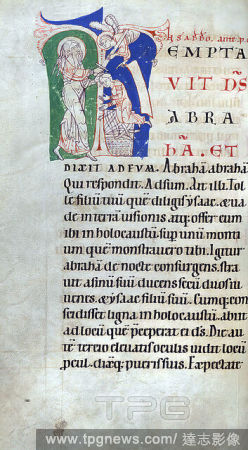 EMPTA
VIT DS
ABRA
HĀ. ET
DIXIT AD EUM. Abrahā abrahā
Qui respondit. Adsum. Ait illi. Tol
le filiū tuū quē diligis ysaac. et ua
de in terrā uisionis atq; offer eum
ibi in holocaustū sup unū monti
um quē monstrauero tibi. Igitur
abrahā de nocte consurgens. stra
uit asinū suū ducens secū duos iu
uenes. et ysaac filiū suū. Cumq; con
cidisset ligna in holocaustū. abiit
ad locū quē pceperat ei ds. Die aut
tercio eleuatis oculis uidit locū
pcul. dixitq; pueris suis. Expectate
TPG
www.tpgnews.com / 達志影像